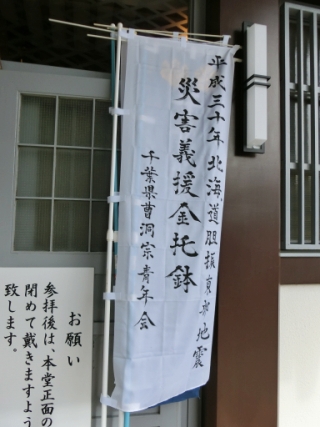 平成三十年北海道胆振東部地震
災害義援金托鉢
千葉県曹洞宗青年会
お願い
参拝後は、本堂正面の
閉めて戴きますよう
致します。